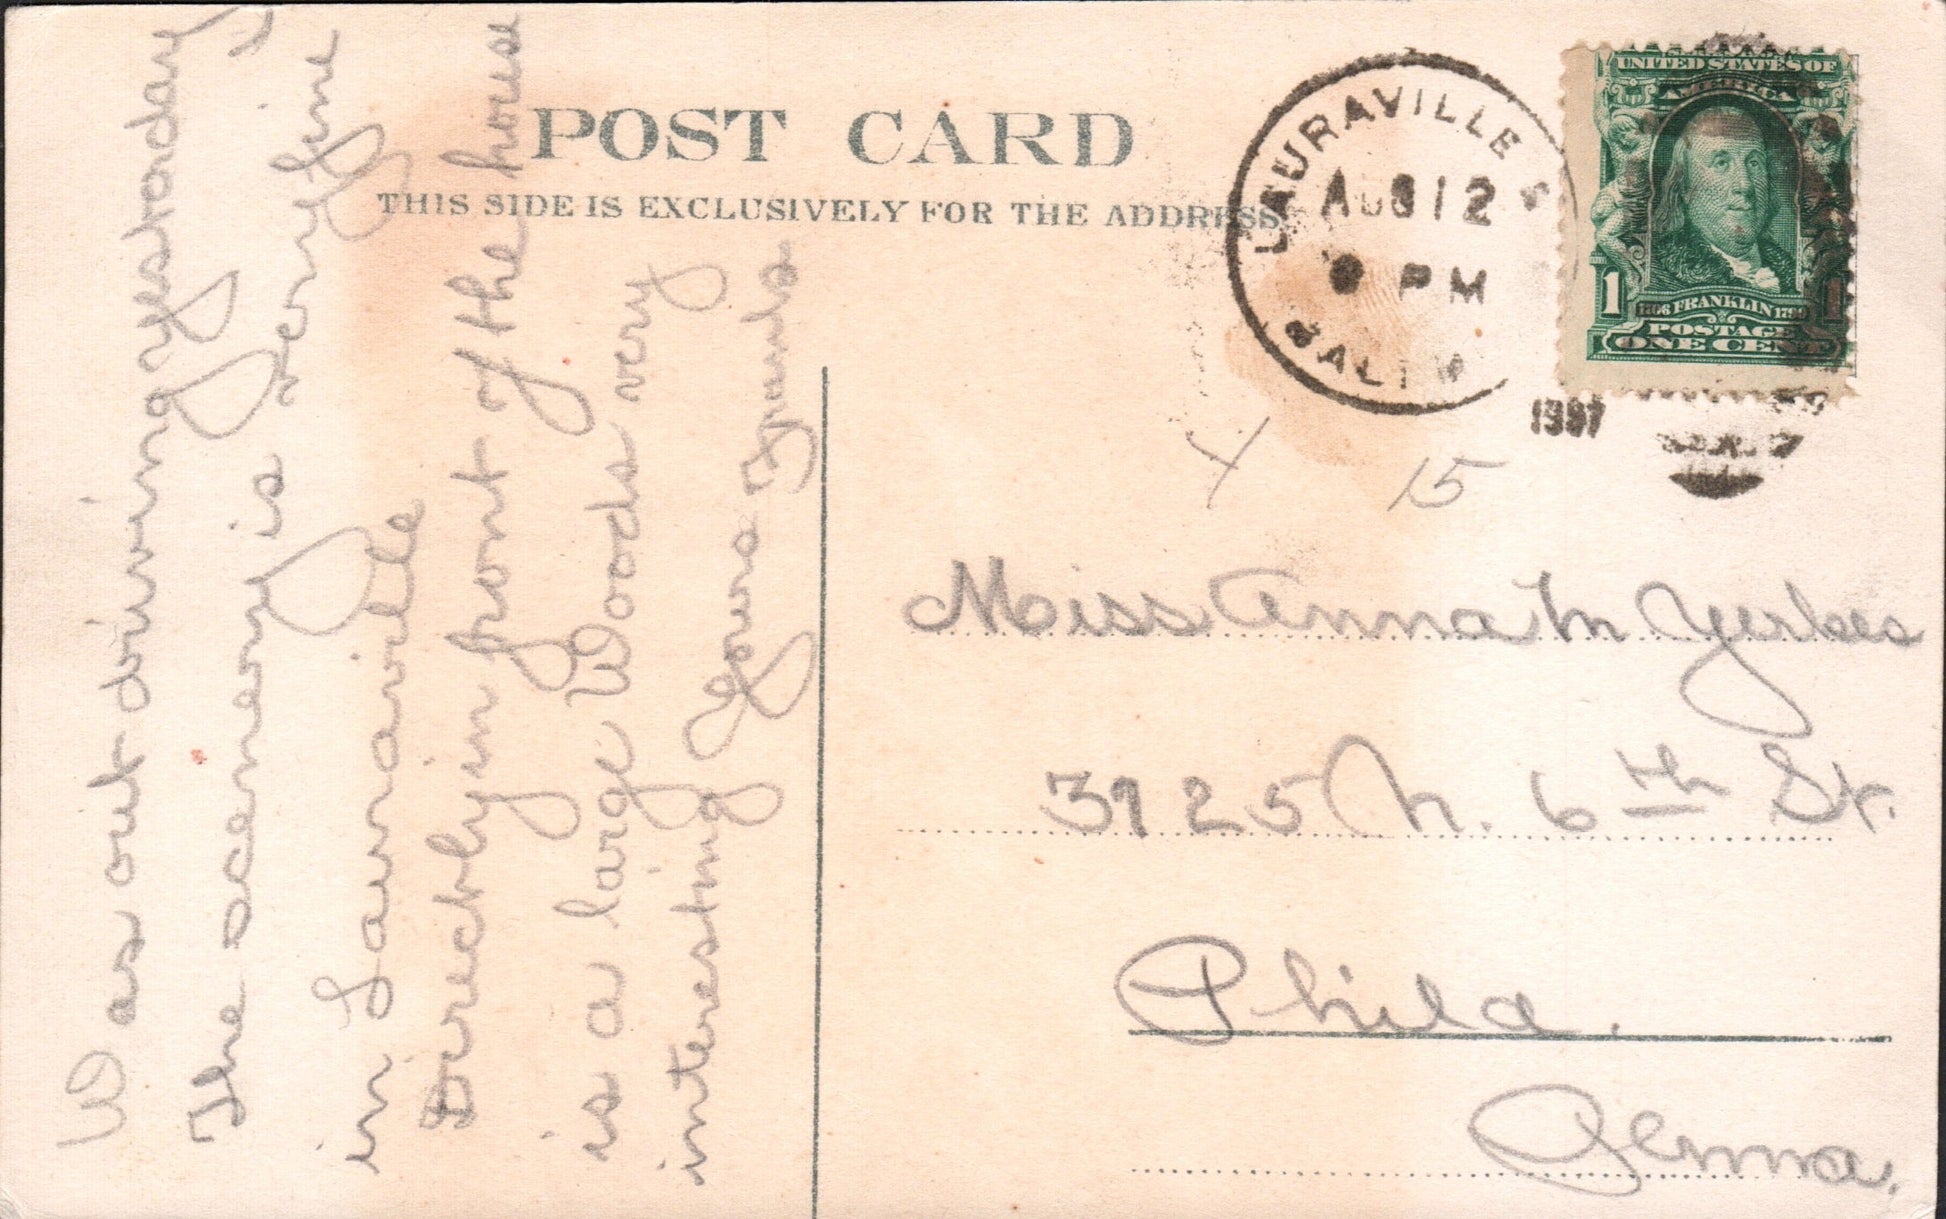 POST CARD
THIS SIDE IS EXCLUSIVELY FOR THE ADDRESS
LAURAVILLE S
AUG 12
8 PM
BALTIM
UNITED STATES OF
AMERICA
1 1
1706 FRANKLIN 1790
POSTAGE
ONE CENT
15
Was out driving yesterday
The scenery is very fine
in Lauraville
Directly in front of the house
is a large Woods very
interesting Yours
Miss Anna M Yerkes
3725 N. 6th St.
Phila.
Penna.